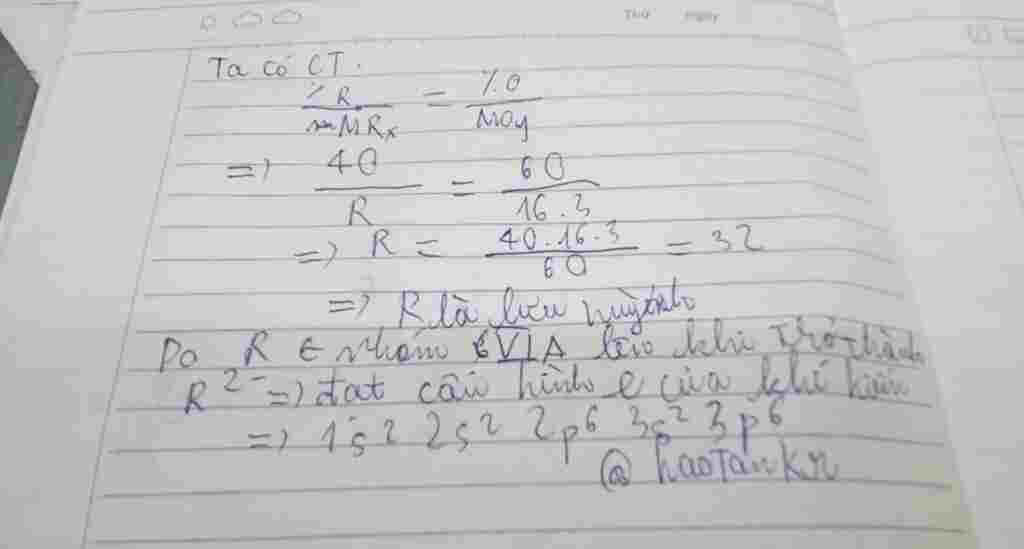 Thứ Ngày
Ta có CT.
% R / MRx = % O / MOy
=> 40 / R = 60 / 16 . 3
=> R = 40 . 16 . 3 / 60 = 32
=> R là lưu huỳnh
Do R ∈ nhóm VIA lên khi trở thành
R²⁻ => đạt cấu hình e của khí hiếm
=> 1s² 2s² 2p⁶ 3s² 3p⁶
@ haotankn